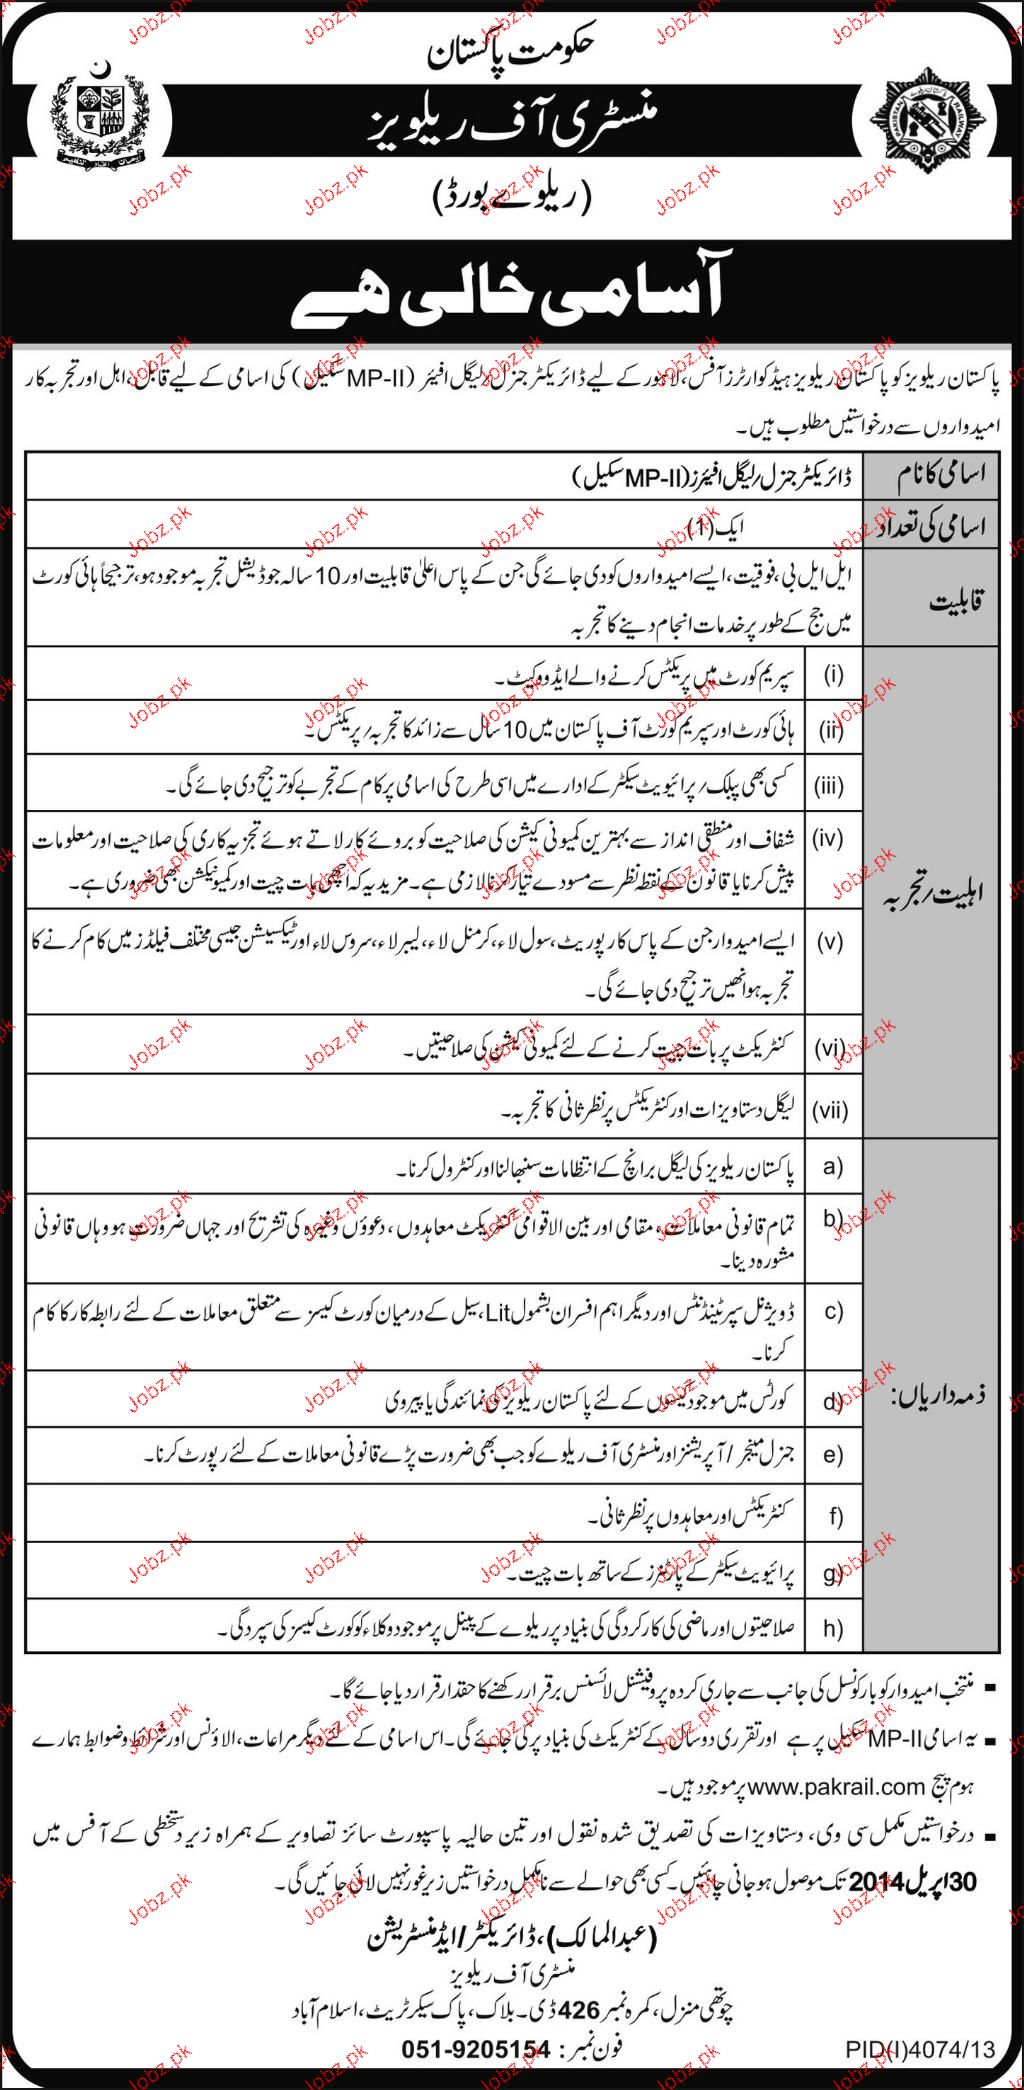 حکومت پاکستان
منسٹری آف ریلویز
(ریلوے بورڈ)
آسامی خالی ھے
پاکستان ریلویز کو پاکستان ریلویز ہیڈکوارٹرز آفس، لاہور کے لیے ڈائریکٹر جنرل/لیگل افیئر (MP-II سکیل) کی اسامی کے لیے قابل، اہل اور تجربہ کار
امیدواروں سے درخواستیں مطلوب ہیں۔
اسامی کا نام ڈائریکٹر جنرل/لیگل افیئرز (MP-II سکیل)
اسامی کی تعداد ایک (1)
قابلیت ایل ایل بی، فوقیت، ایسے امیدواروں کو دی جائے گی جن کے پاس اعلیٰ قابلیت اور 10 سالہ جوڈیشل تجربہ موجود ہو، ترجیحاً ہائی کورٹ
میں جج کے طور پر خدمات انجام دینے کا تجربہ
اہلیت/تجربہ
(i) سپریم کورٹ میں پریکٹس کرنے والے ایڈووکیٹ۔
(ii) ہائی کورٹ اور سپریم کورٹ آف پاکستان میں 10 سال سے زائد کا تجربہ/پریکٹس۔
(iii) کسی بھی پبلک/پرائیویٹ سیکٹر کے ادارے میں اسی طرح کی اسامی پر کام کے تجربے کو ترجیح دی جائے گی۔
(iv) شفاف اور منطقی انداز سے بہترین کمیونی کیشن کی صلاحیت کو بروئے کار لاتے ہوئے تجزیہ کاری کی صلاحیت اور معلومات
پیش کرنا یا قانون کے نقطہ نظر سے مسودے تیار کرنا لازمی ہے۔ مزید یہ کہ اچھی بات چیت اور کمیونیکشن بھی ضروری ہے۔
(v) ایسے امیدوار جن کے پاس کارپوریٹ، سول لاء، کرمنل لاء، لیبر لاء، سروس لاء اور ٹیکسیشن جیسی مختلف فیلڈز میں کام کرنے کا
تجربہ ہو انھیں ترجیح دی جائے گی۔
(vi) کنٹریکٹ پر بات چیت کرنے کے لئے کمیونی کیشن کی صلاحیتیں۔
(vii) لیگل دستاویزات اور کنٹریکٹس پر نظر ثانی کا تجربہ۔
ذمہ داریاں:
a) پاکستان ریلویز کی لیگل برانچ کے انتظامات سنبھالنا اور کنٹرول کرنا۔
b) تمام قانونی معاملات، مقامی اور بین الاقوامی کنٹریکٹ معاہدوں، دعوؤں وغیرہ کی تشریح اور جہاں ضرورت ہو وہاں قانونی
مشورہ دینا۔
c) ڈویژنل سپرٹینڈنٹس اور دیگر اہم افسران بشمول Lit، سیل کے درمیان کورٹ کیسز سے متعلق معاملات کے لئے رابطہ کار کا کام
کرنا۔
d) کورٹس میں موجود کیسوں کے لئے پاکستان ریلویز کی نمائندگی یا پیروی
e) جنرل مینجر/آپریشنز اور منسٹری آف ریلوے کو جب بھی ضرورت پڑے قانونی معاملات کے لئے رپورٹ کرنا۔
f) کنٹریکٹس اور معاہدوں پر نظر ثانی۔
g) پرائیویٹ سیکٹر کے پارٹنرز کے ساتھ بات چیت۔
h) صلاحیتوں اور ماضی کی کارکردگی کی بنیاد پر ریلوے کے پینل پر موجود وکلاء کو کورٹ کیسز کی سپردگی۔
▪ منتخب امیدوار کو بار کونسل کی جانب سے جاری کردہ پروفیشنل لائسنس برقرار رکھنے کا حقدار قرار دیا جائے گا۔
▪ یہ اسامی MP-II سکیل پر ہے اور تقرری دو سال کے کنٹریکٹ کی بنیاد پر کی جائے گی۔ اس اسامی کے لئے دیگر مراعات، الاؤنس اور شرائط و ضوابط ہمارے
ہوم پیج www.pakrail.com پر موجود ہیں۔
▪ درخواستیں مکمل سی وی، دستاویزات کی تصدیق شدہ نقول اور تین حالیہ پاسپورٹ سائز تصاویر کے ہمراہ زیر دستخطی کے آفس میں
30 اپریل 2014 تک موصول ہو جانی چاہئیں۔ کسی بھی حوالے سے نامکمل درخواستیں زیر غور نہیں لائی جائیں گی۔
(عبدالمالک)، ڈائریکٹر/ایڈمنسٹریشن
منسٹری آف ریلویز
چوتھی منزل، کمرہ نمبر 426 ڈی۔ بلاک، پاک سیکرٹریٹ، اسلام آباد
فون نمبر: 051-9205154
PID(I)4074/13